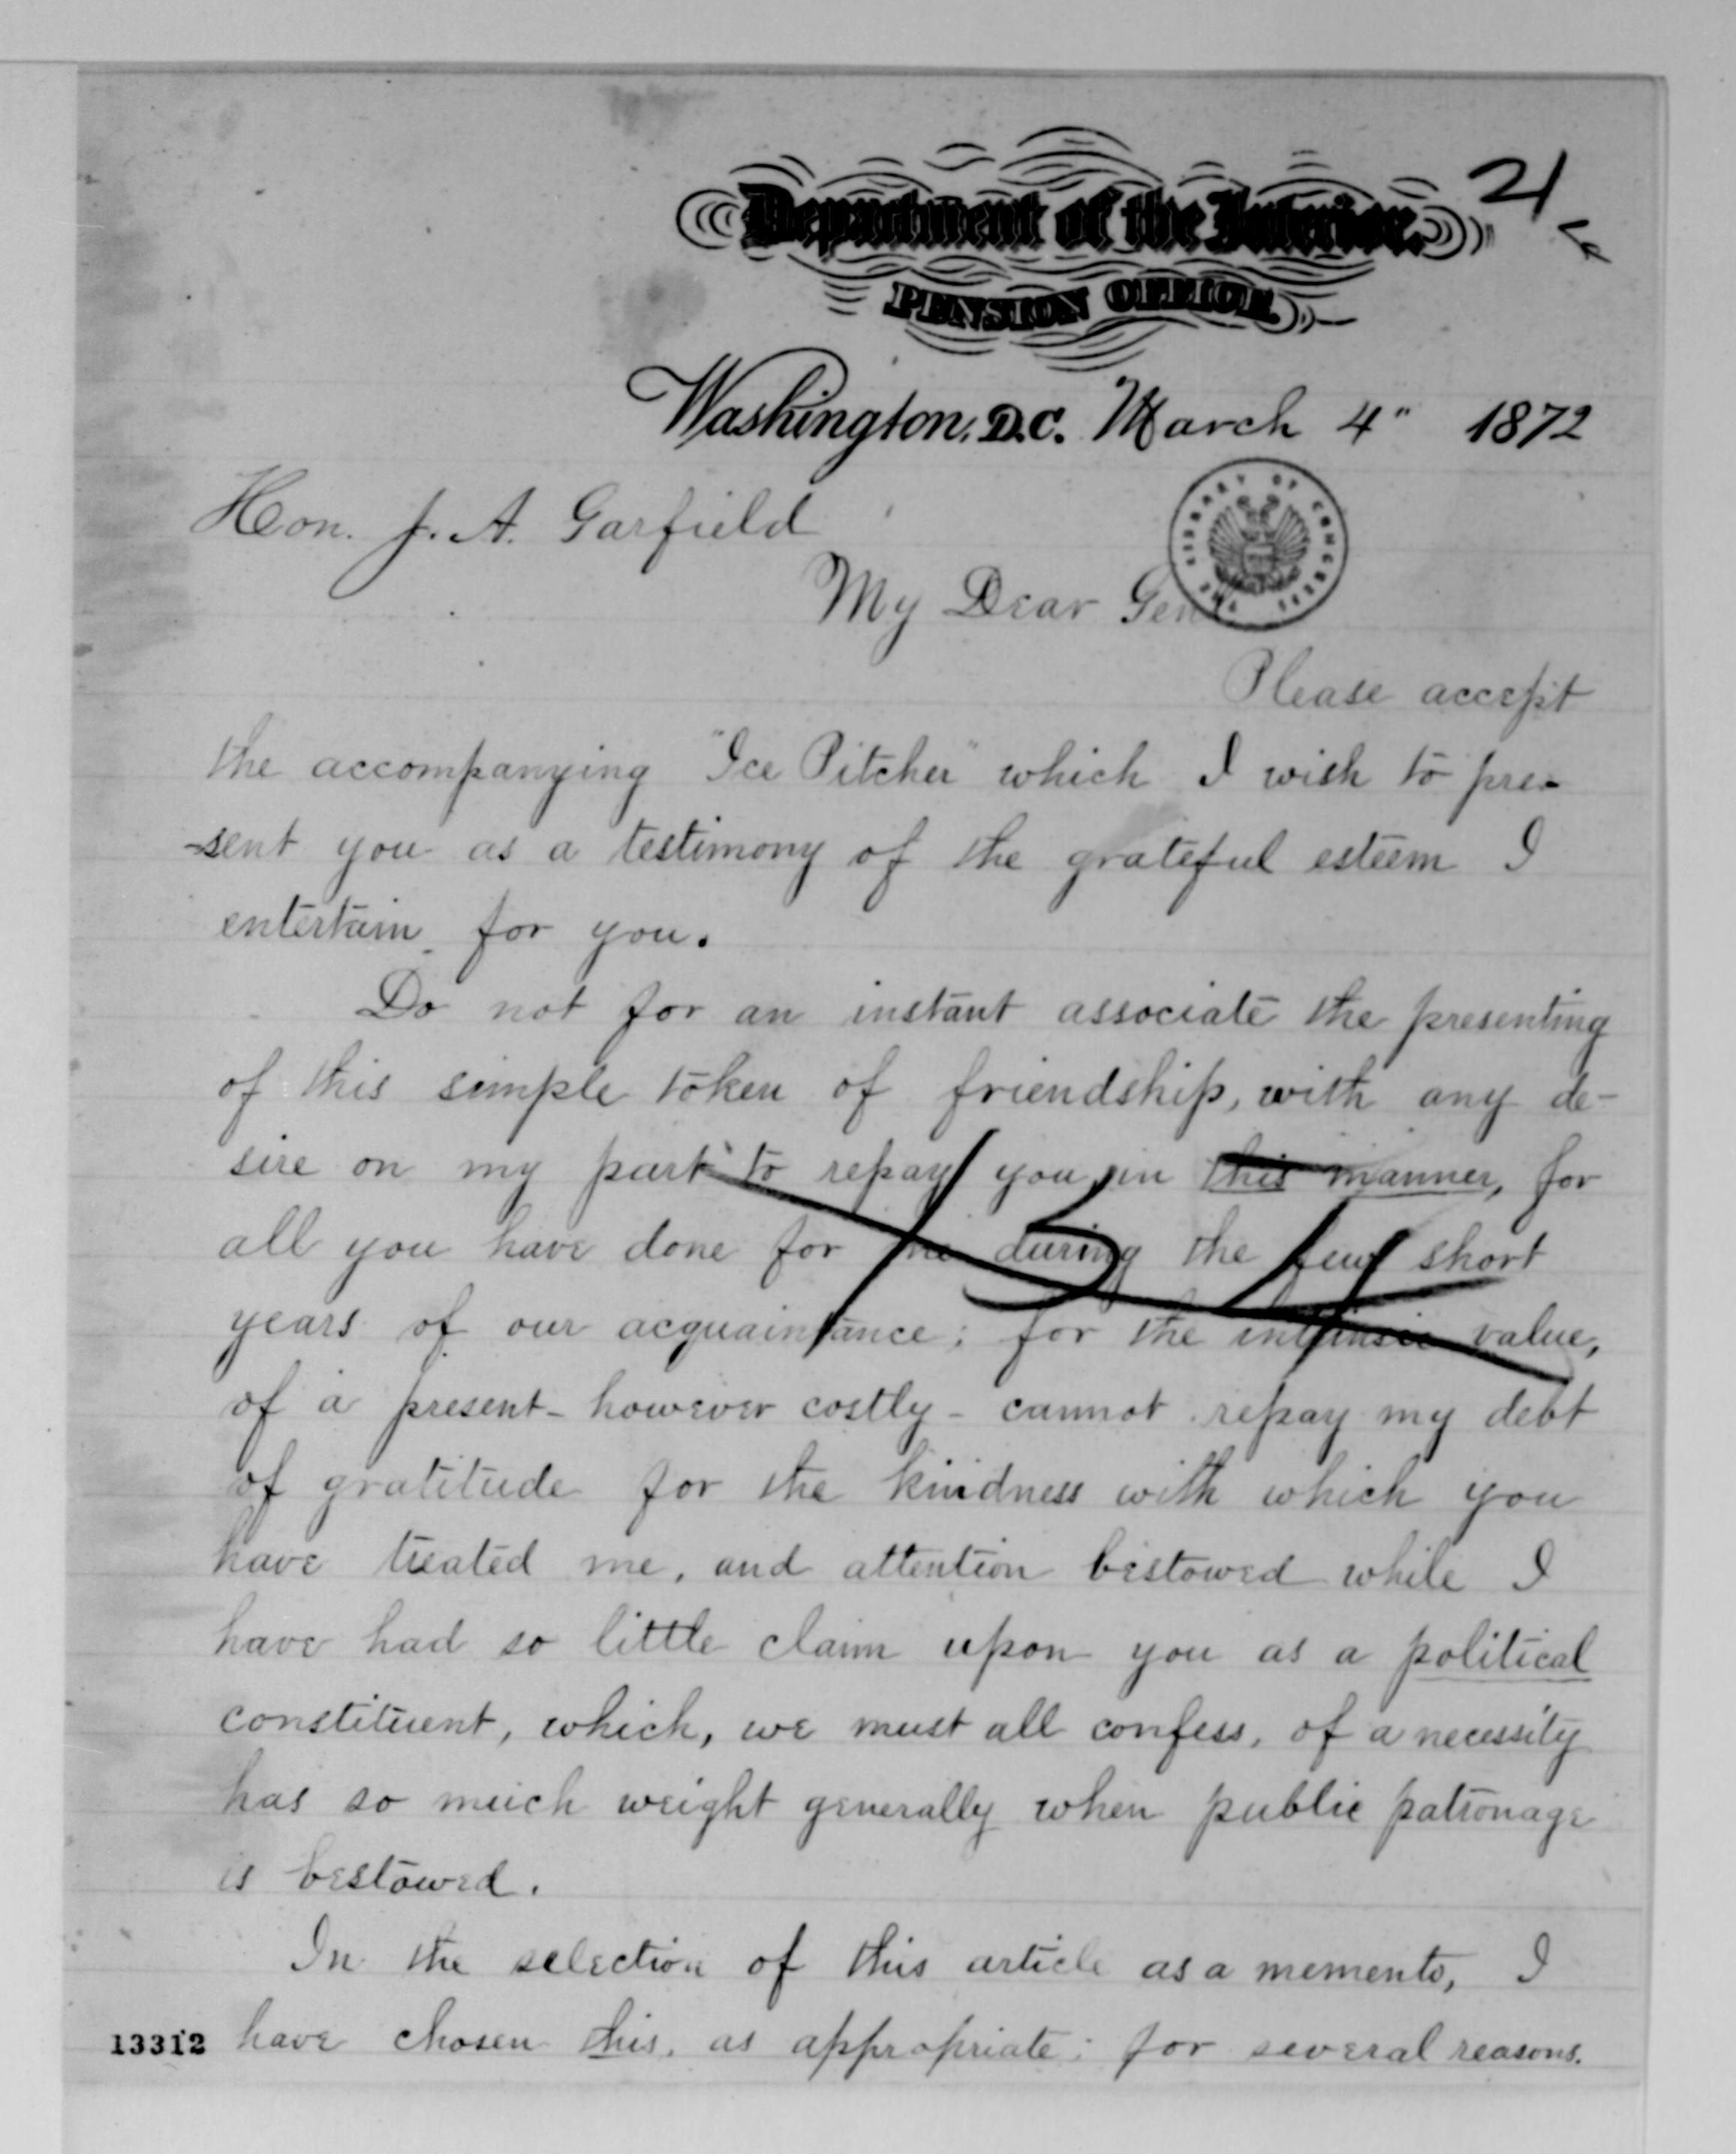 Department of the Interior.
21
PENSION OFFICE.
Washington, D.C. March 4" 1872
Hon. J. A. Garfield
THE LIBRARY OF CONGRESS
My Dear Genl
Please accept
the accompanying "Ice Pitcher" which I wish to pre-
-sent you as a testimony of the grateful esteem I
entertain for you.
Do not for an instant associate the presenting
of this simple token of friendship, with any de-
sire on my part to repay you in this manner, for
all you have done for me during the few short
years of our acquaintance; for the intrinsic value,
of a present - however costly - cannot repay my debt
of gratitude for the kindness with which you
have treated me, and attention bestowed while I
have had so little claim upon you as a political
constituent, which, we must all confess, of a necessity
has so much weight generally when public patronage
is bestowed.
In the selection of this article as a memento, I
have chosen this, as appropriate; for several reasons.
13312